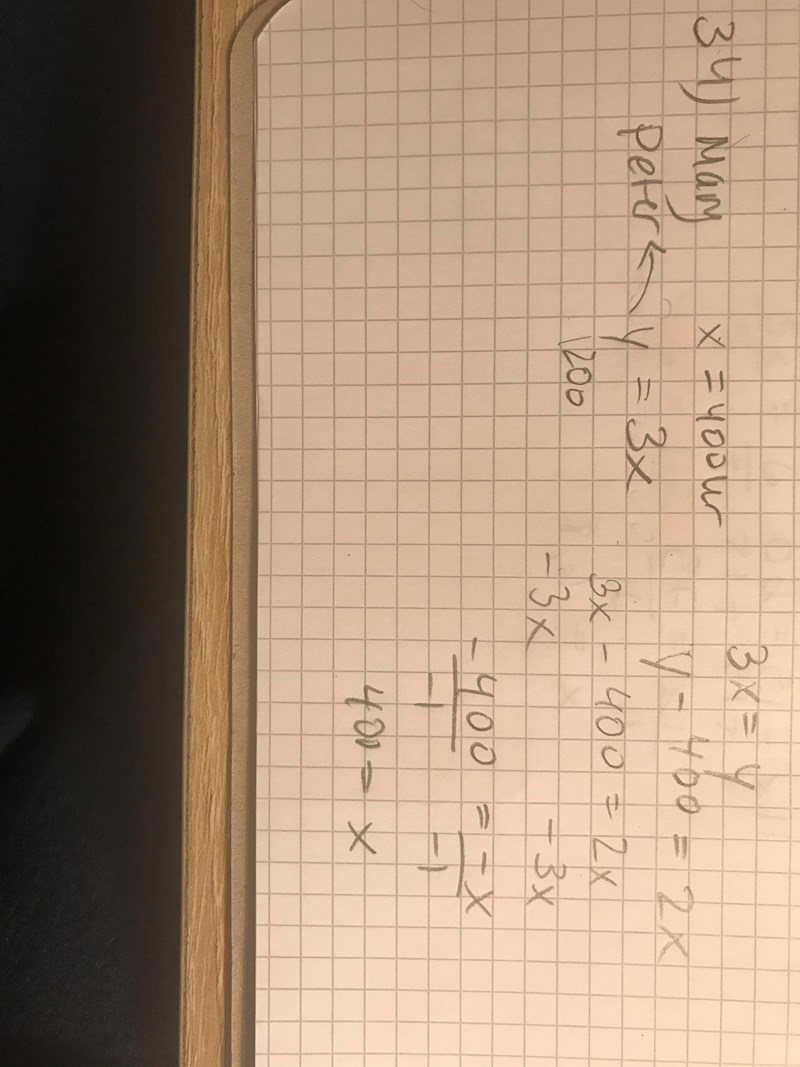 34) Mary x = 400
Peter ← y = 3x
1200
3x = y
y - 400 = 2x
3x - 400 = 2x
-3x -3x
-400 = -x
-1 -1
400 = x